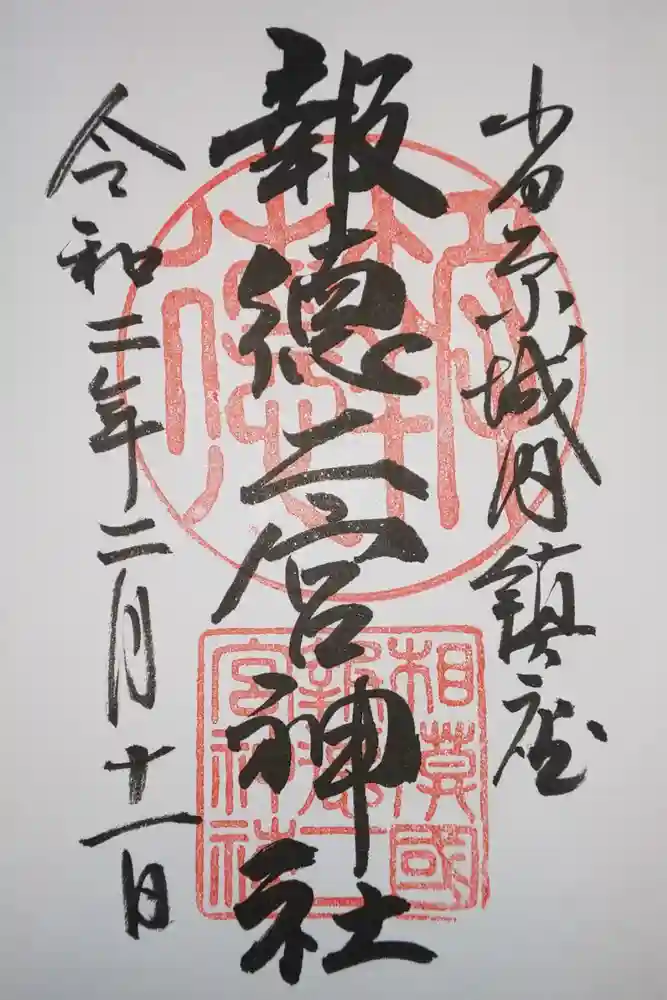 小田原城内鎮座
報徳二宮神社
令和二年二月十一日
相模國
報徳二
宮神社